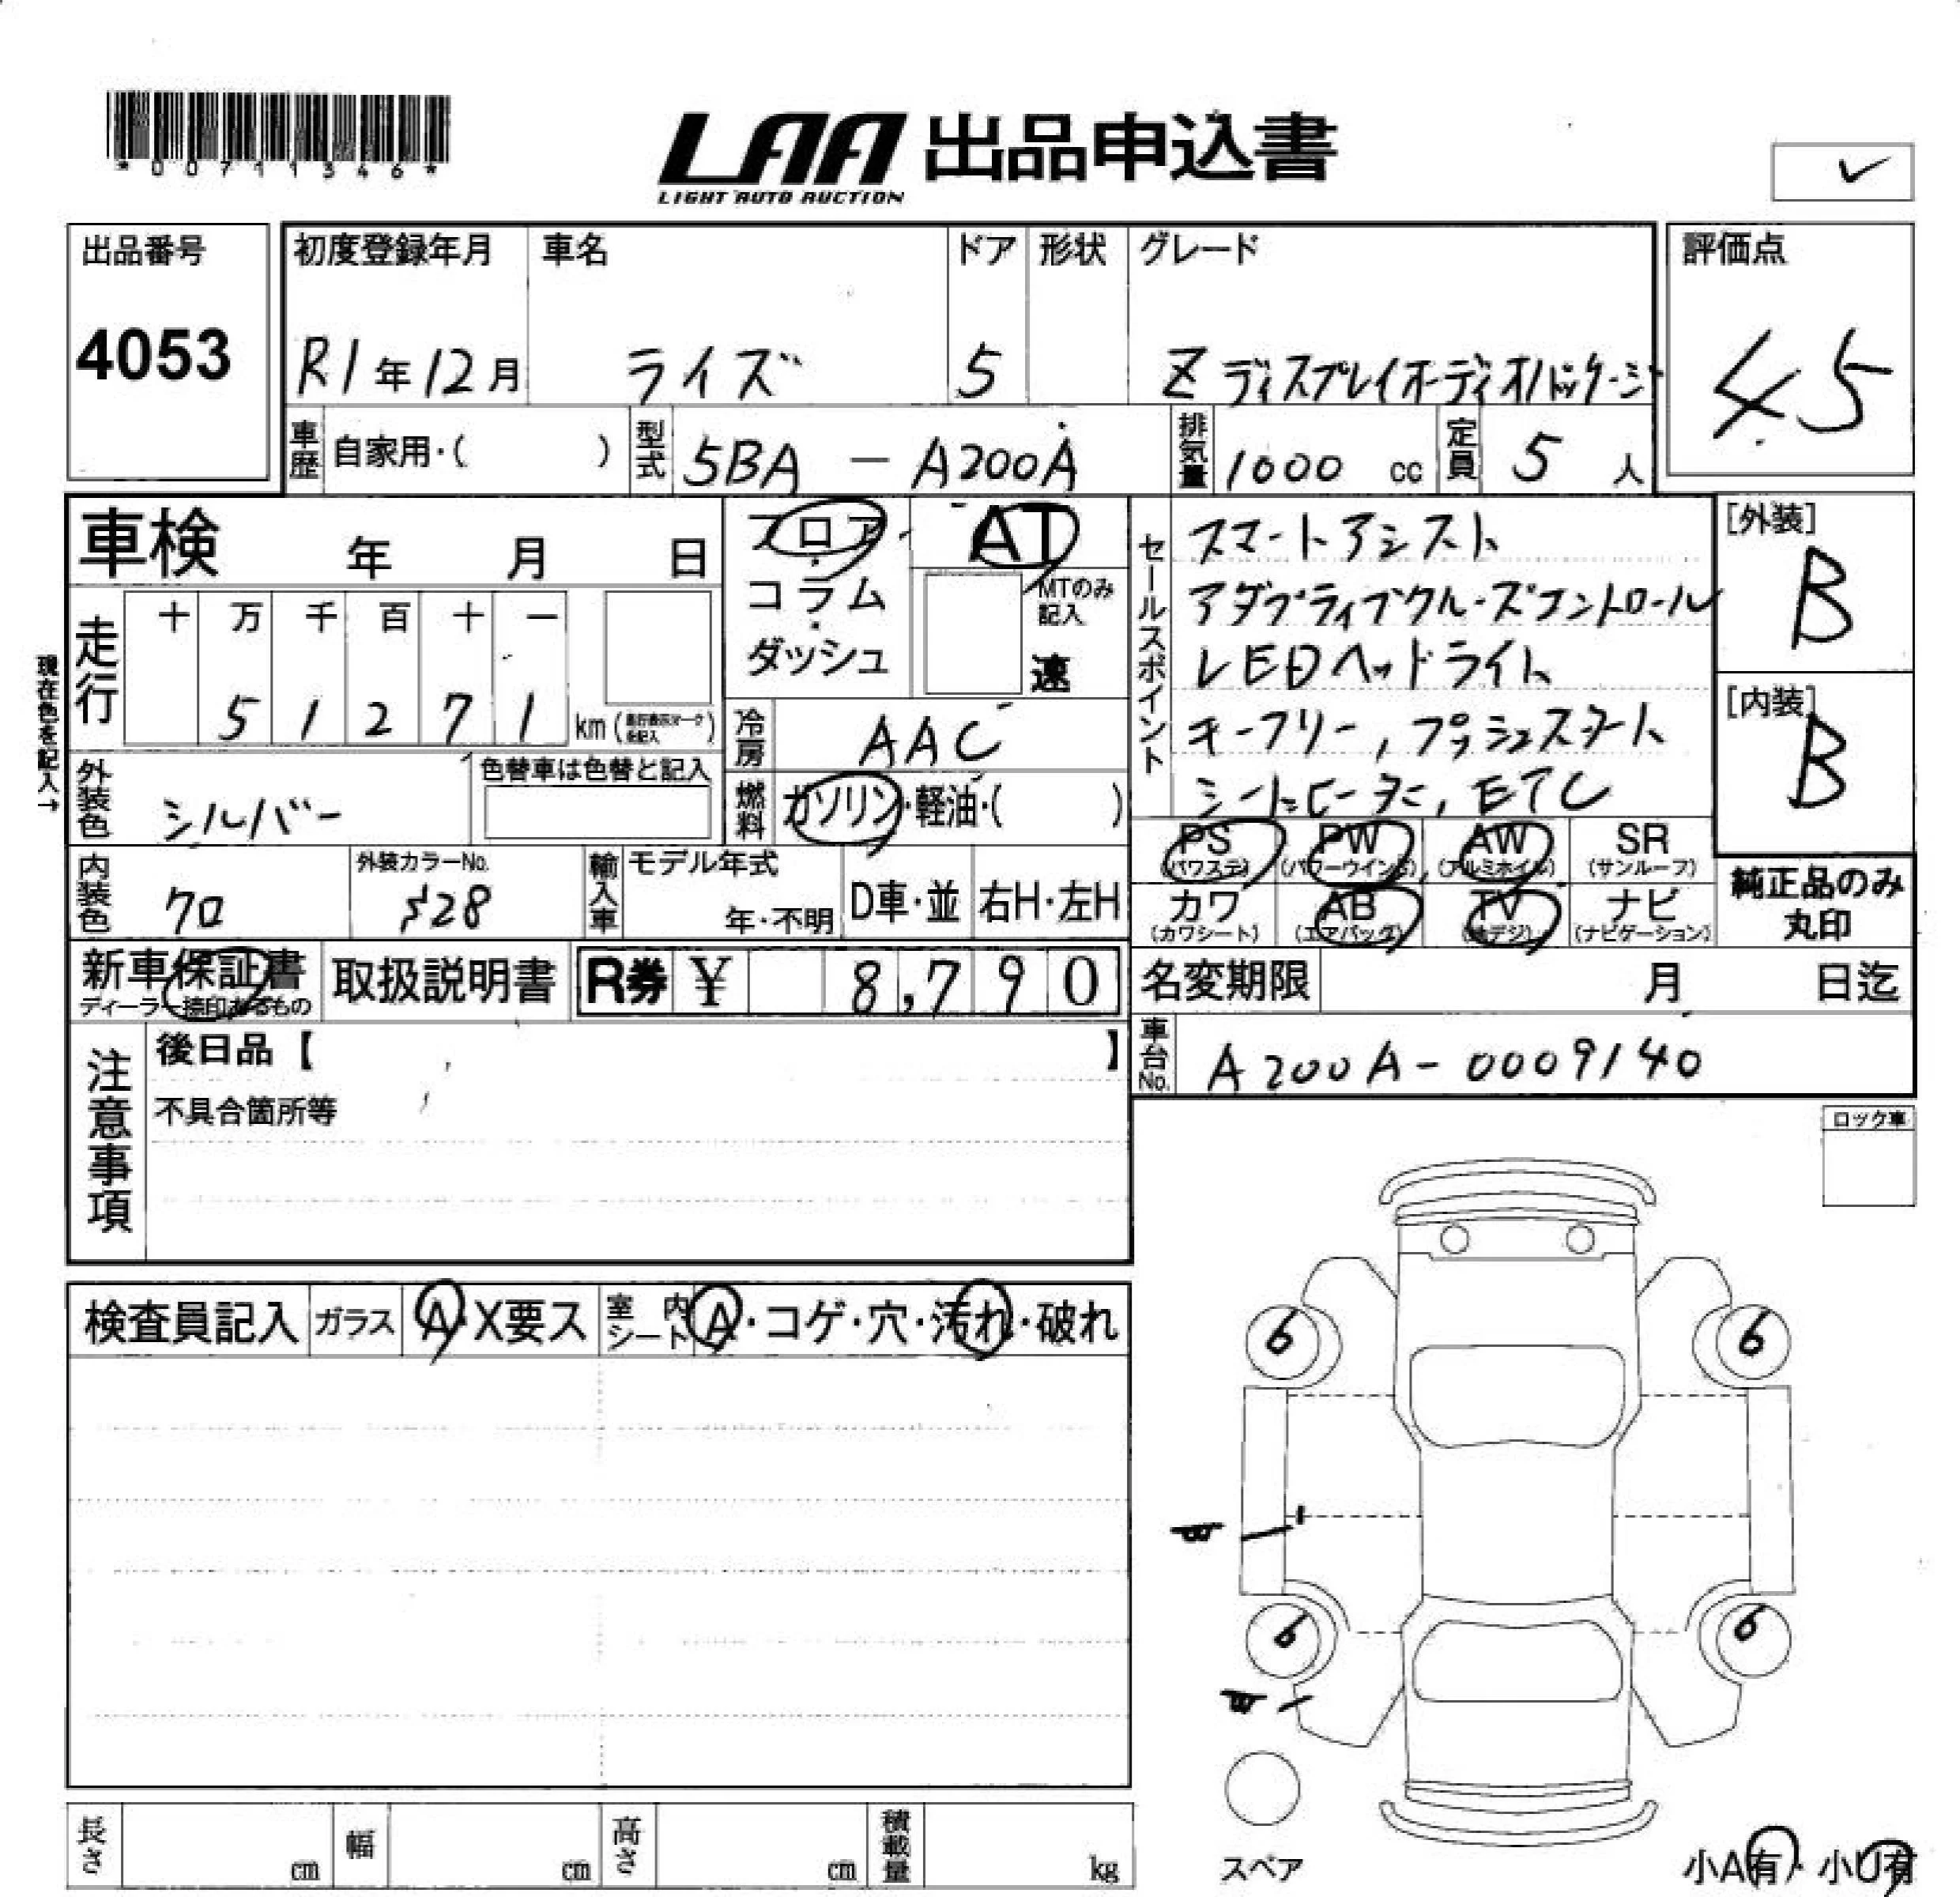 *00711346*
LAA 出品申込書
LIGHT AUTO AUCTION
✓
出品番号
4053
初度登録年月
R1年12月
車名
ライズ
ドア
5
形状
グレード
Z ディスプレイオーディオパッケージ
評価点
4.5
車歴 自家用・( )
型式 5BA - A200A
排気量 1000 cc
定員 5 人
車検 年 月 日
走行 十 万 千 百 十 一
5 1 2 7 1 km(走行表示マークを記入)
現在色を記入→
外装色 シルバー
色替車は色替と記入
内装色 クロ
外装カラーNo.
S28
輸入車 モデル年式
年・不明
D車・並
右H・左H
フロア・
コラム・
ダッシュ
AT
MTのみ
記入
速
冷房 AAC
燃料 ガソリン・軽油・( )
セールスポイント
スマートアシスト
アダプティブクルーズコントロール
LEDヘッドライト
キーフリー,プッシュスタート
シートヒーター,ETC
[外装]
B
[内装]
B
PS
(パワステ)
PW
(パワーウインド)
AW
(アルミホイル)
SR
(サンルーフ)
カワ
(カワシート)
AB
(エアバッグ)
TV
(地デジ)
ナビ
(ナビゲーション)
純正品のみ
丸印
新車保証書
ディーラー捺印あるもの
取扱説明書
R券 ¥ 8,790
名変期限 月 日迄
車台No. A200A-0009140
注意事項
後日品【 】
不具合箇所等
ロック車
検査員記入
ガラス A・X要ス
室内シート A・コゲ・穴・汚れ・破れ
6
6
6
6
スペア
長さ cm
幅 cm
高さ cm
積載量 kg
小A有・小U有